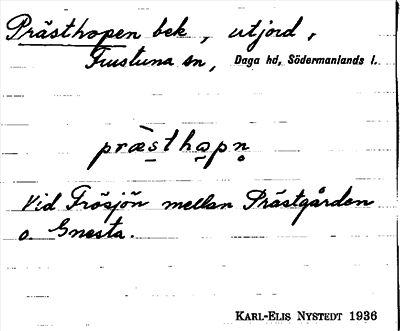 Prästhopen bek, utjord,
Frustuna sn, Daga hd, Södermanlands l.
præ̀sthopn̥
Vid Frösjön mellan Prästgården
o. Gnesta.
KARL-ELIS NYSTEDT 1936